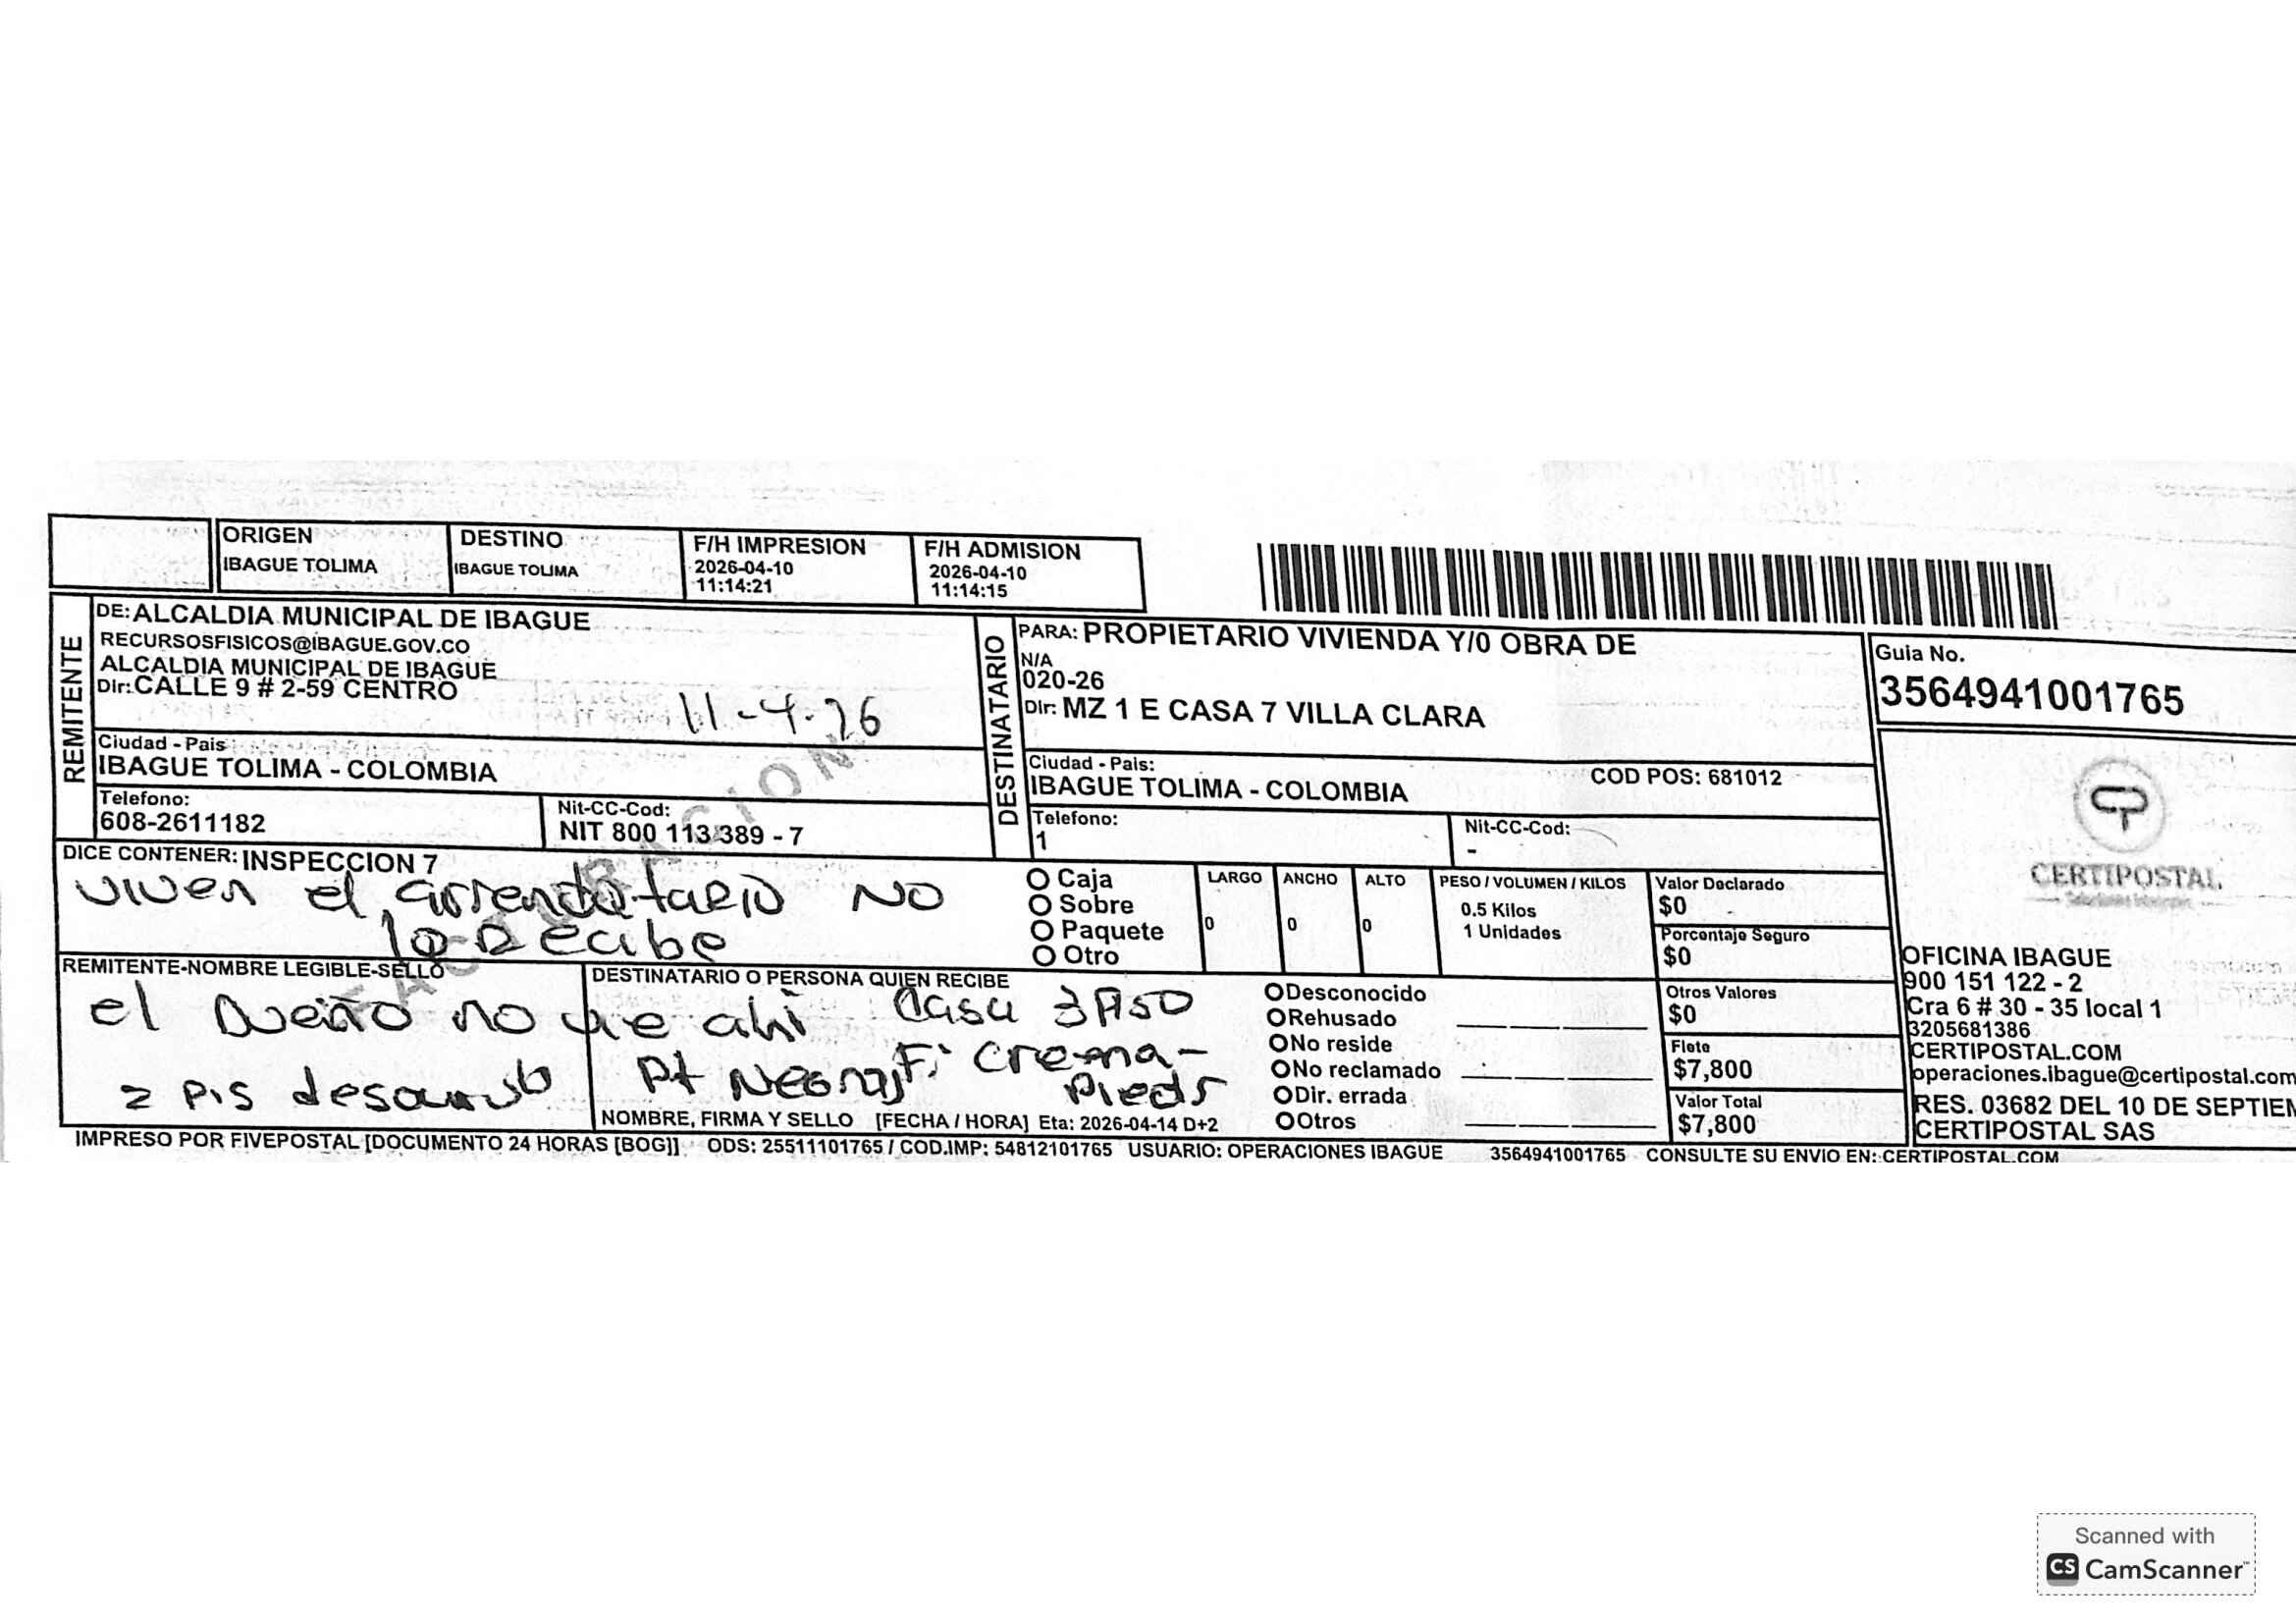 ORIGEN
IBAGUE TOLIMA
DESTINO
IBAGUE TOLIMA
F/H IMPRESION
2026-04-10
11:14:21
F/H ADMISION
2026-04-10
11:14:15
REMITENTE
DE: ALCALDIA MUNICIPAL DE IBAGUE
RECURSOSFISICOS@IBAGUE.GOV.CO
ALCALDIA MUNICIPAL DE IBAGUE
Dir: CALLE 9 # 2-59 CENTRO
11-4-26
Ciudad - Pais
IBAGUE TOLIMA - COLOMBIA
Telefono:
608-2611182
Nit-CC-Cod:
NIT 800 113 389 - 7
DESTINATARIO
PARA: PROPIETARIO VIVIENDA Y/0 OBRA DE
N/A
020-26
Dir: MZ 1 E CASA 7 VILLA CLARA
Ciudad - Pais:
IBAGUE TOLIMA - COLOMBIA
COD POS: 681012
Telefono:
1
Nit-CC-Cod:
-
Guia No.
3564941001765
CERTIPOSTAL
DICE CONTENER: INSPECCION 7
viven el arrendatario NO
lo Recibe
Caja
Sobre
Paquete
Otro
LARGO
0
ANCHO
0
ALTO
0
PESO / VOLUMEN / KILOS
0.5 Kilos
1 Unidades
Valor Declarado
$0
Porcentaje Seguro
$0
Otros Valores
$0
Flete
$7,800
Valor Total
$7,800
REMITENTE-NOMBRE LEGIBLE-SELLO
el Dueño no ahi
2 Pis
DESTINATARIO O PERSONA QUIEN RECIBE
Casa 3 Piso
Pt Negra Fi Crema-
NOMBRE, FIRMA Y SELLO [FECHA / HORA] Eta: 2026-04-14 D+2
Desconocido
Rehusado
No reside
No reclamado
Dir. errada
Otros
OFICINA IBAGUE
900 151 122 - 2
Cra 6 # 30 - 35 local 1
3205681386
CERTIPOSTAL.COM
operaciones.ibague@certipostal.com
RES. 03682 DEL 10 DE SEPTIEM
CERTIPOSTAL SAS
IMPRESO POR FIVEPOSTAL [DOCUMENTO 24 HORAS [BOG]] ODS: 25511101765 / COD.IMP: 54812101765 USUARIO: OPERACIONES IBAGUE 3564941001765 CONSULTE SU ENVIO EN: CERTIPOSTAL.COM
Scanned with
CS CamScanner